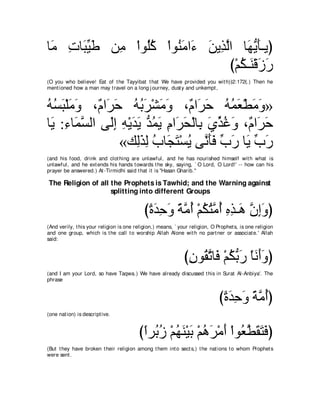 (يَـأَيُّهَا الَّذِينَ ءَامَنُواْ كُلُواْ مِن طَيِّبَاتِ مَا
رَزَقْنَـكُمْ)
(O you who believe! Eat of the Tayyibat that We have provided you with)(2:172).) Then he
mentioned how a man may travel on a long journey, dusty and unkempt,
«وَمَطْعَمُهُ حَرَامٌ، وَمَشْرَبُهُ حَرَامٌ، وَمَلْبَسُهُ
حَرَامٌ، وَغُذِّيَ بِالْحَرَامِ يَمُدُّ يَدَيْهِ إِلَى السَّمَاءِ: يَا
رَبِّ يَا رَبِّ فَأَنَّى يُسْتَجَابُ لِذَلِك»
(and his food, drink and clothing are unlawful, and he has nourished himself with what is
unlawful, and he extends his hands towards the sky, saying, `O Lord, O Lord!' -- how can his
prayer be answered.) At-Tirmidhi said that it is "Hasan Gharib."
The Religion of all the Prophets is Tawhid; and the Warning against
splitting into different Groups
(وَإِنَّ هَـذِهِ أُمَّتُكُمْ أُمَّةً وَحِدَةً)
(And verily, this your religion is one religion,) means, `your religion, O Prophets, is one religion
and one group, which is the call to worship Allah Alone with no partner or associate.' Allah
said:
(وَأَنَاْ رَبُّكُمْ فَاتَّقُونِ)
(and I am your Lord, so have Taqwa.) We have already discussed this in Surat Al-Anbiya'. The
phrase
(أُمَّةً وَحِدَةً)
(one nation) is descriptive.
(فَتَقَطَّعُواْ أَمْرَهُمْ بَيْنَهُمْ زُبُراً)
(But they have broken their religion among them into sects,) the nations to whom Prophets
were sent.